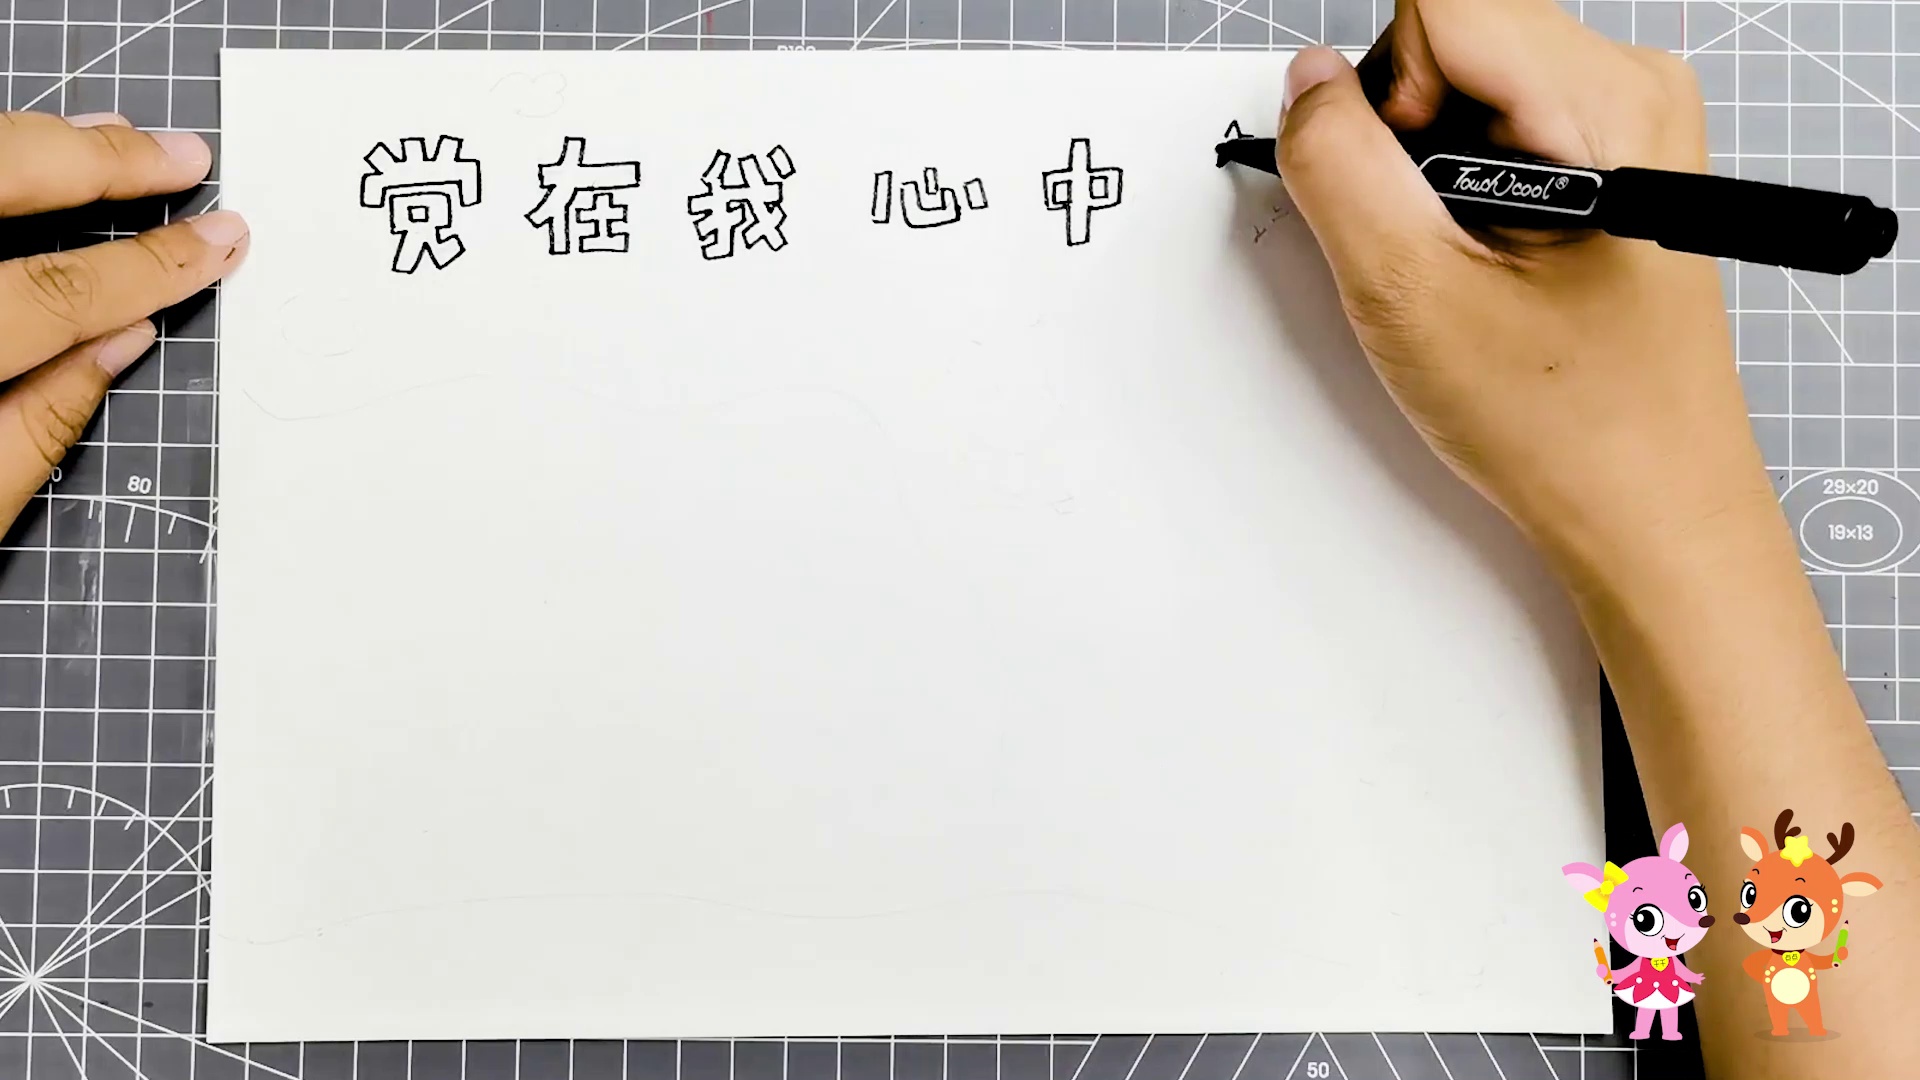 党在我心中
TouchCool®
80
29×20
19×13
50